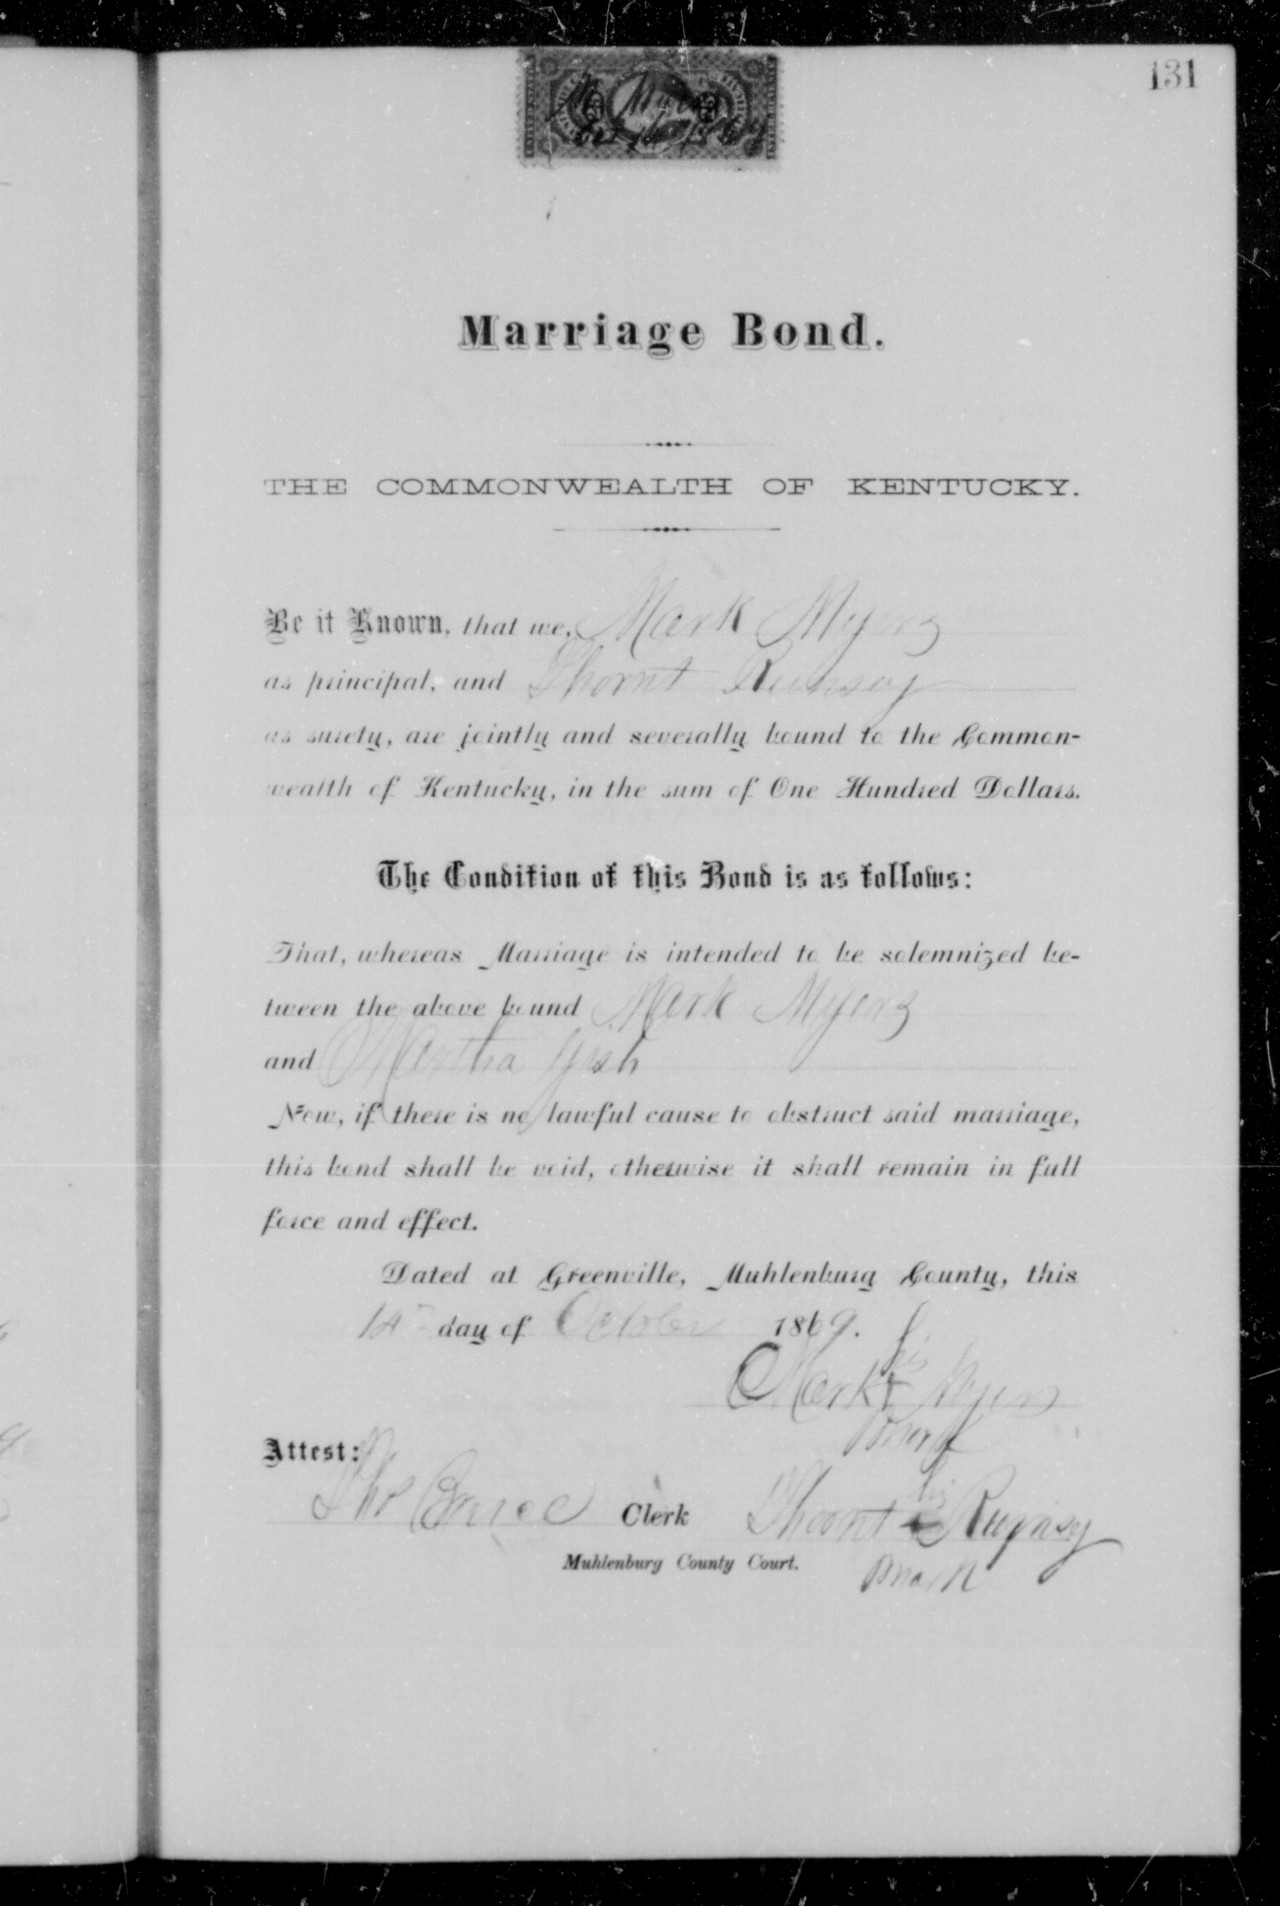 131
M Myers
Marriage Bond.
THE COMMONWEALTH OF KENTUCKY.
Be it Known, that we, Mark Myers
as principal, and Thornt Rumsey
as surety, are jointly and severally bound to the Common-
wealth of Kentucky, in the sum of One Hundred Dollars.
The Condition of this Bond is as follows:
That, whereas Marriage is intended to be solemnized be-
tween the above bound Mark Myers
and Martha Gish
Now, if there is no lawful cause to obstruct said marriage,
this bond shall be void, otherwise it shall remain in full
force and effect.
Dated at Greenville, Muhlenburg County, this
day of October 1869.
his
Mark X Myers
mark
Attest:
Tho Bruce Clerk
his
Thornt x Rumsey
mark
Muhlenburg County Court.